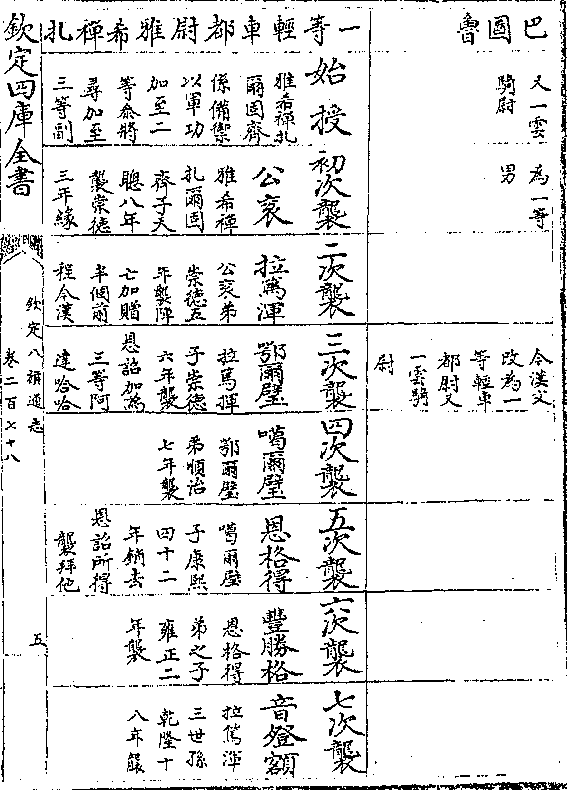 巴圖魯
又一雲
騎尉
為一等
男
今漢文
改為一
等輕車
都尉又
一雲騎
尉
一等輕車都尉雅希禪扎
始授
雅希禪扎
爾固齊
係備禦
以軍功
加至二
等叅將
尋加至
三等副
初次襲
公袞
雅希禪
扎爾固
齊子天
聰八年
襲崇德
三年緣
二次襲
拉篤渾
公袞弟
崇德五
年襲陣
亡加贈
半個前
程今漢
三次襲
鄂爾璧
拉篤揮
子崇德
六年襲
恩詔加為
三等阿
達哈哈
四次襲
噶爾璧
鄂爾璧
弟順治
七年襲
五次襲
恩格得
噶爾璧
子康熙
四十二
年銷去
恩詔所得
襲拜他
六次襲
豐勝格
恩格得
弟之子
雍正二
年襲
七次襲
音登額
拉篤渾
三世孫
乾隆十
八年襲
欽定四庫全書
欽定八旗通志
卷二百七十八
五